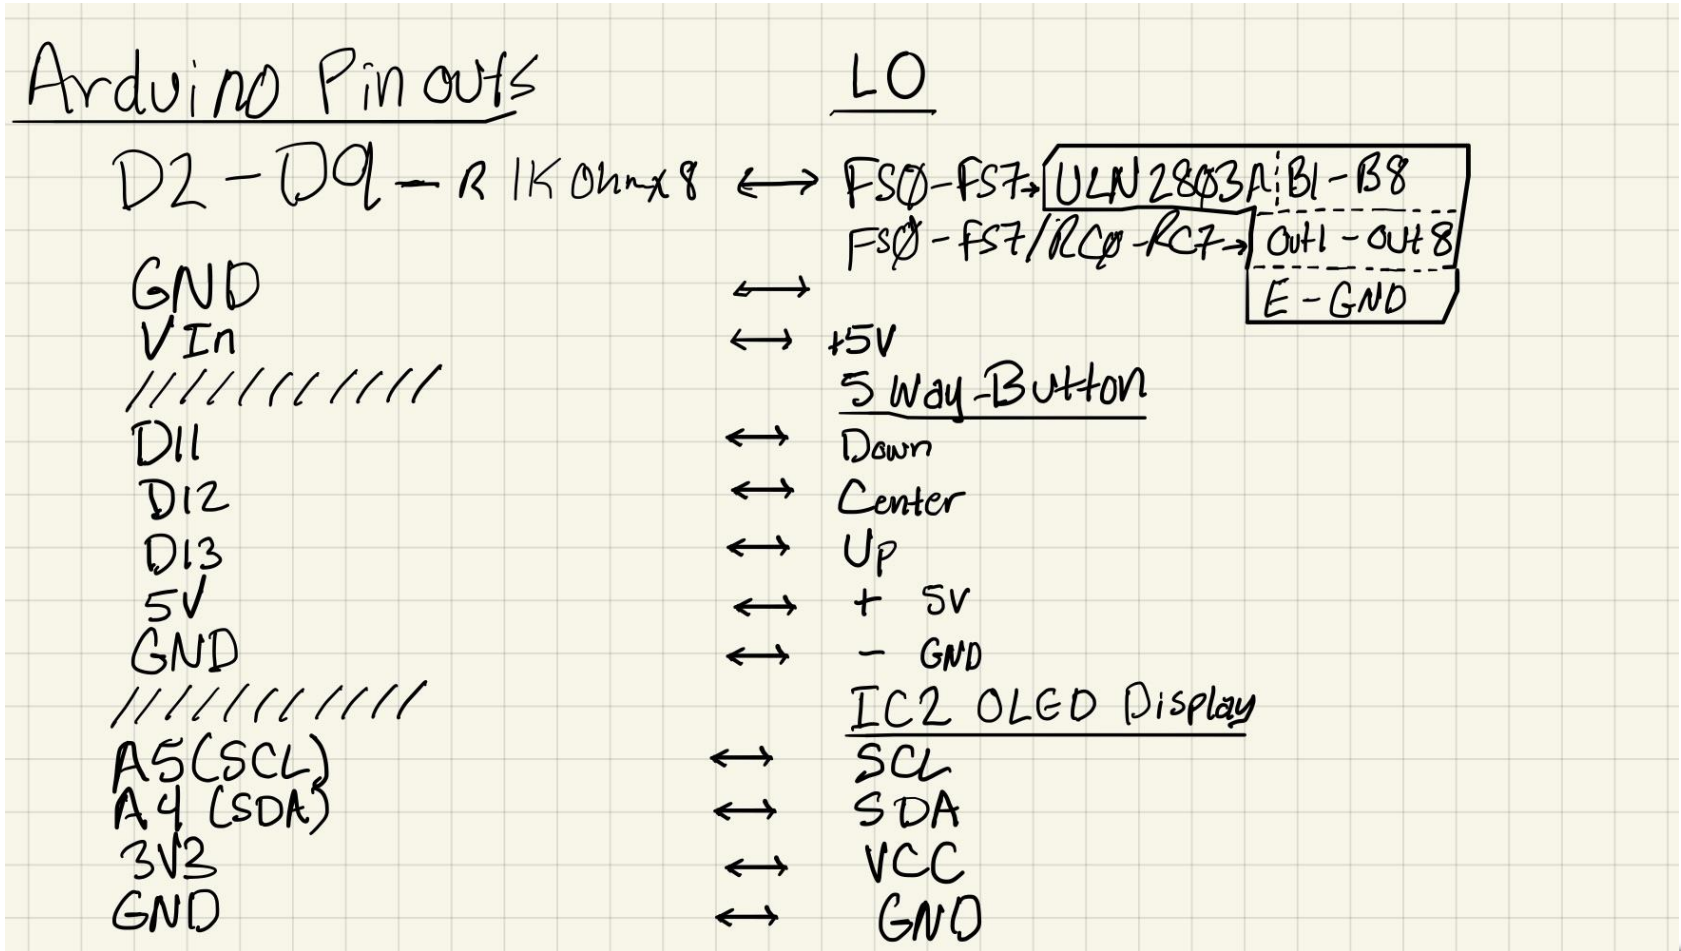 Arduino Pinouts LO
D2-D9-R 1K Ohmx8 ↔ FS0-FS7→ ULN2803A B1-B8
FS0-FS7/RC0-RC7→ Out1-Out8
GND ↔ E-GND
VIn ↔ +5V
/////////// 5 Way-Button
D11 ↔ Down
D12 ↔ Center
D13 ↔ Up
5V ↔ + 5V
GND ↔ - GND
/////////// IC2 OLED Display
A5(SCL) ↔ SCL
A4 (SDA) ↔ SDA
3V3 ↔ VCC
GND ↔ GND